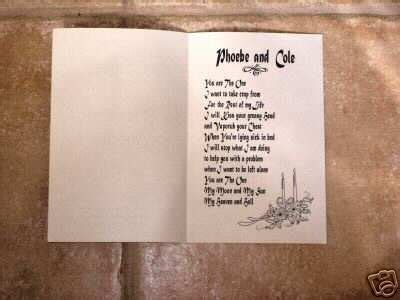 Phoebe and Cole
You are The One
I want to take crap from
For the Rest of my Life
I will Kiss your greasy head
and Vaporub your Chest
When You're lying sick in bed
I will stop what I am doing
to help you with a problem
when I want to be left alone
You are The One
My Moon and My Sun
My Heaven and Hell